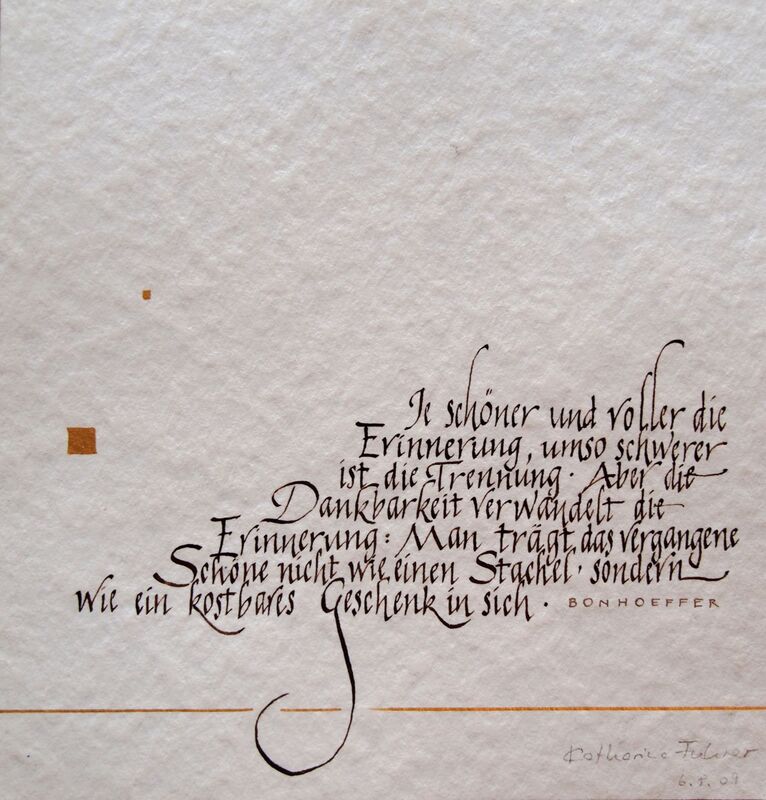 Je schöner und voller die
Erinnerung, umso schwerer
ist die Trennung. Aber die
Dankbarkeit verwandelt die
Erinnerung: Man trägt das vergangene
Schöne nicht wie einen Stachel, sondern
wie ein kostbares Geschenk in sich. BONHOEFFER
Katharina Fuhrer